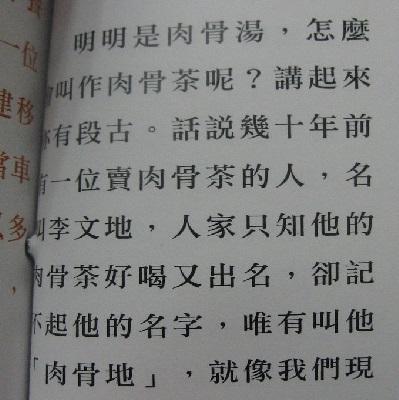 明明是肉骨湯，怎麼
會叫作肉骨茶呢？講起來
亦有段古。話說幾十年前
有一位賣肉骨茶的人，名
叫李文地，人家只知他的
肉骨茶好喝又出名，卻記
不起他的名字，唯有叫他
「肉骨地」，就像我們現
一位
建移
當車
多
，